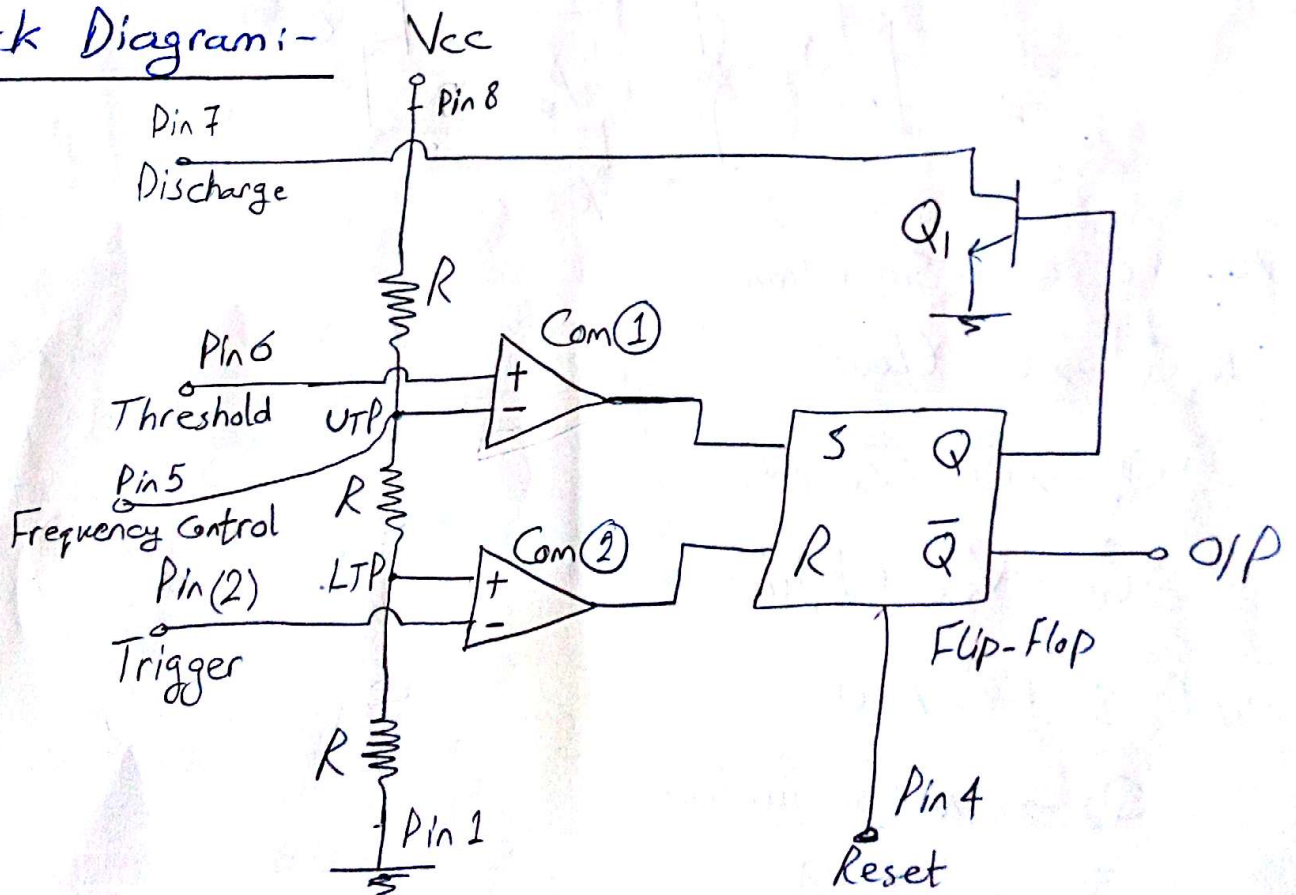 k Diagram:-
Vcc
Pin 8
Pin 7
Discharge
Q1
R
Com ①
Pin 6
Threshold
UTP
+
-
S
Q
Pin 5
Frequency Control
R
Com ②
R
Q̅
O/P
Pin (2)
.LTP
+
-
Trigger
Flip-Flop
R
Pin 4
Pin 1
Reset